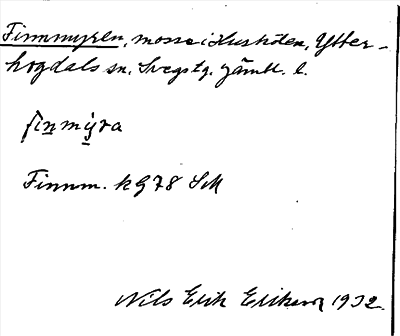 Finnmyren, mosse i Huskölen, Ytter-
hogdals sn, Svegs tg. Jämtl. l.
finmyra
Finnm. kG78 SM
Nils Erik Erikson 1932.